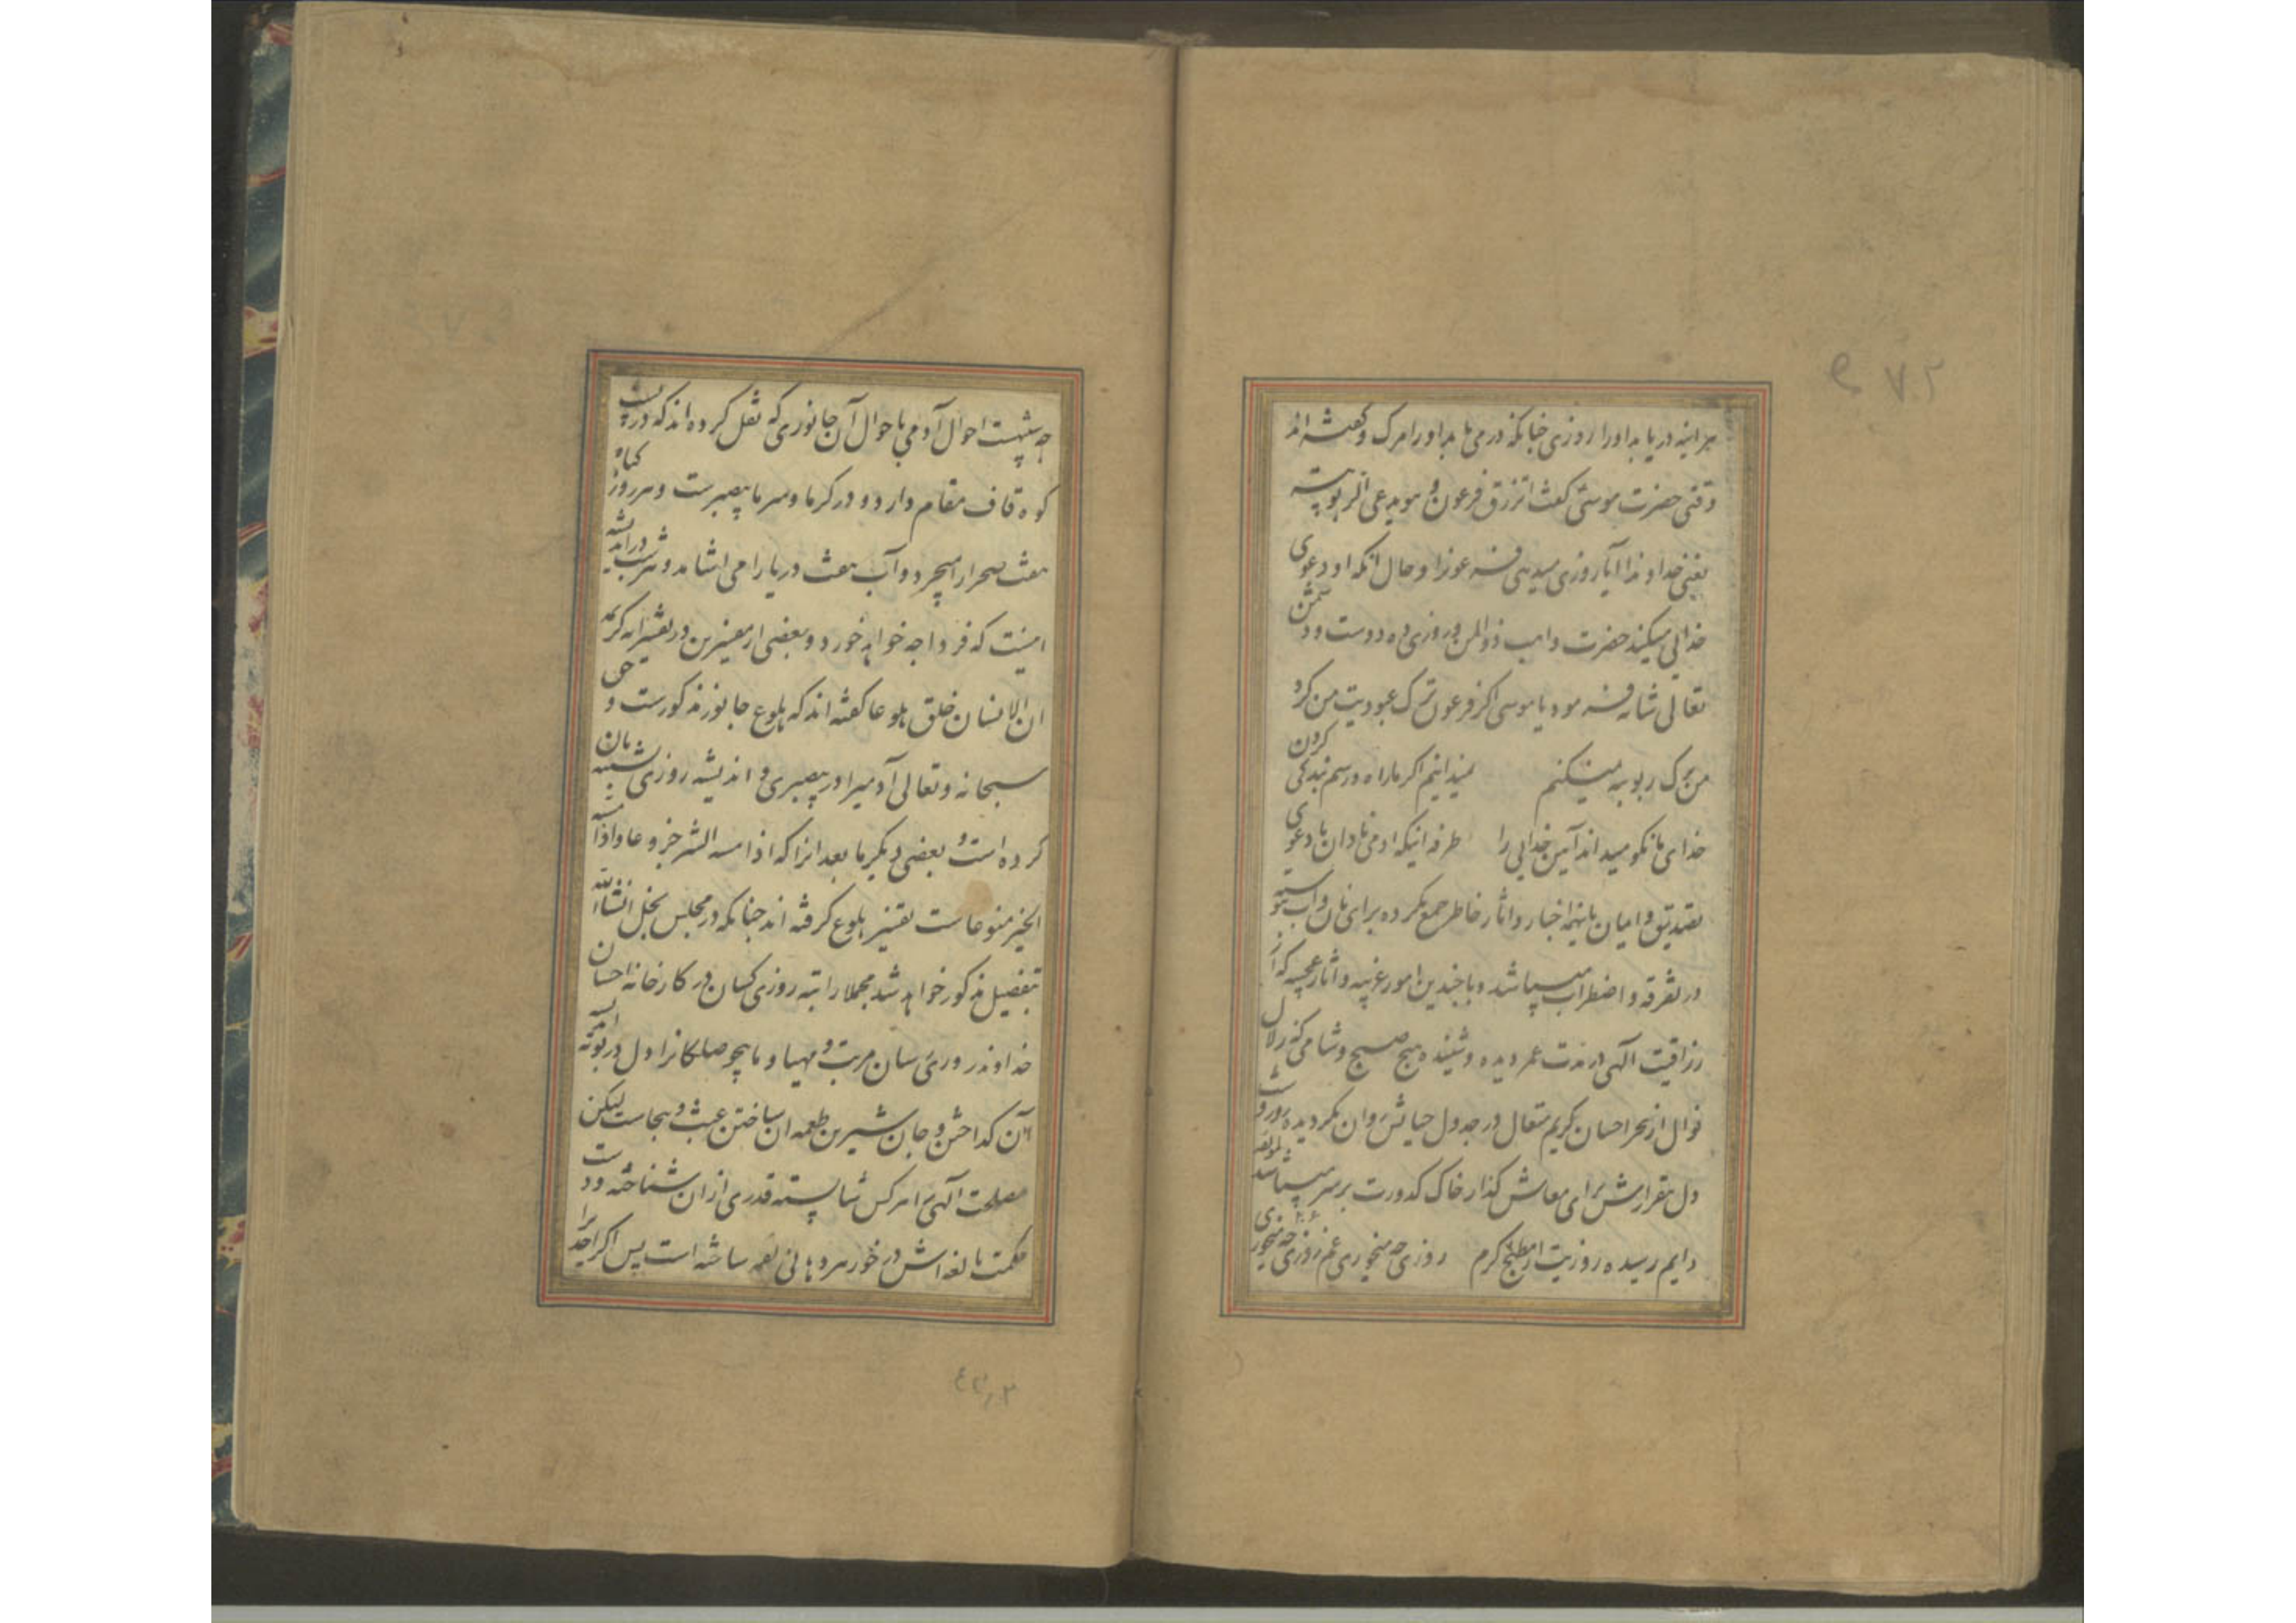 هر اینه دریابد اورا روزی چنانکه درمی یابد اورا مرک و کفته اند
وقتی حضرت موسی کفت اترزق فرعون و هو یدعی الربوبیته
یعنی خداوندا آیا روزی میدهی فرعونرا و حال انکه او دعوی
خدائی میکند حضرت واهب ذوالمنن و روزی ده دوست و دشمن
تعالی شانه فرمود یا موسی اکر فرعون ترک عبودیت من کرد
من ترک ربوبیه نمیکنم نمیدانیم اکر ما راه و رسم بندکی کردن
خدای ما نکو میداند آیین خدایی را طرفه اینکه ادمی نادان با دعوی
تصدیق و ایمان باینهمه اخبار و اثار خاطر جمع نکرده برای نان و آب پیوسته
در تفرقه و اضطراب میباشد و با چندین امور غریبه و اثار عجیبه که از
رزاقیت آلهی در مدت عمر دیده و شنیده هیچ صبح و شامی که زلال
نوال از بحر احسان کریم متعال در جدول حیاتش روان نکردیده
دل بیقرارش برای معاش کذار خاک کدورت بر سر میپاشد لمؤلفه
دایم رسیده روزیت از مطبخ کرم روزی چه میخوری غم روزی چه میخوری
چه شبیهست احوال آدمی باحوال آن جانوری که نقل کرده اند که در پشت
کوه قاف مقام دارد و در کرما و سرما بیصبرست و هر روز کیاه
هفت صحرا را میچرد و آب هفت دریا را می اشامد و هر شب در اندیشه
اینست که فردا چه خواهد خورد و بعضی از مفسرین در تفسیر ایه کریمه
ان الانسان خلق هلوعا کفته اند که هلوع جانور مذکورست و حق
سبحانه و تعالی آدمیرا در بیصبری و اندیشه روزی تشبیه بان
کرده است و بعضی دیکر ما بعد انرا که اذا مسه الشر جزوعا و اذا مسه
الخیر منوعاست تفسیر هلوع کرفته اند چنانکه در مجلس بخل انشاالله
بتفصیل مذکور خواهد شد مجملا راتبه روزی کسان در کارخانه احسان
خداوند روزی رسان مرتب و مهیا و ما بیحوصلکانرا دل در بوته اندیشه
آن کداختن و جان شیرین طعمه ان ساختن عبث و بیجاست لیکن
مصلحت آلهی هرکس شایسته قدری از ان شناخته و دست
حکمت بالغه اش در خور هر دهانی لقمه ساخته است پس اکر احدی را